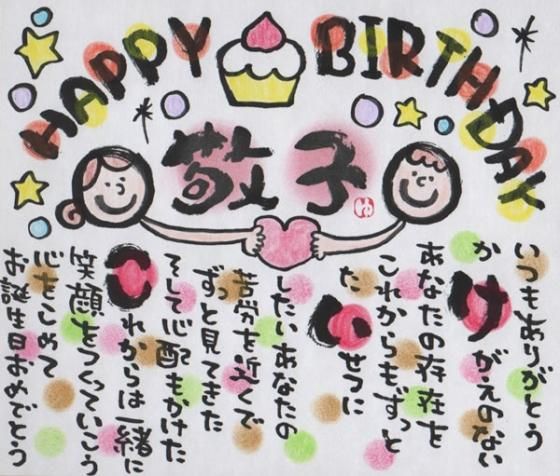 HAPPY BIRTHDAY
敬子
ゆ
いつもありがとう
かけがえのない
あなたの存在を
これからもずっと
たいせつに
したいあなたの
苦労を近くで
ずっと見てきた
そして心配もかけた
これからは一緒に
笑顔をつくっていこう
心をこめて
お誕生日おめでとう